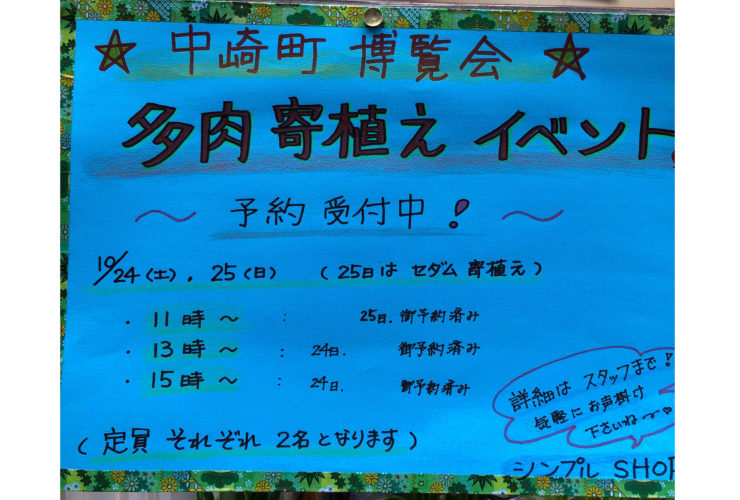 ☆ 中崎町 博覧会 ☆
多肉 寄植え イベント
〜 予約 受付中 ! 〜
10/24(土), 25(日) (25日は セダム 寄植え)
・ 11時〜 : 25日. 御予約済み
・ 13時〜 : 24日. 御予約済み
・ 15時〜 : 24日. 御予約済み
(定員 それぞれ 2名となります)
詳細は スタッフまで!
気軽に お声掛け
下さいね〜♡
シンプル SHOP